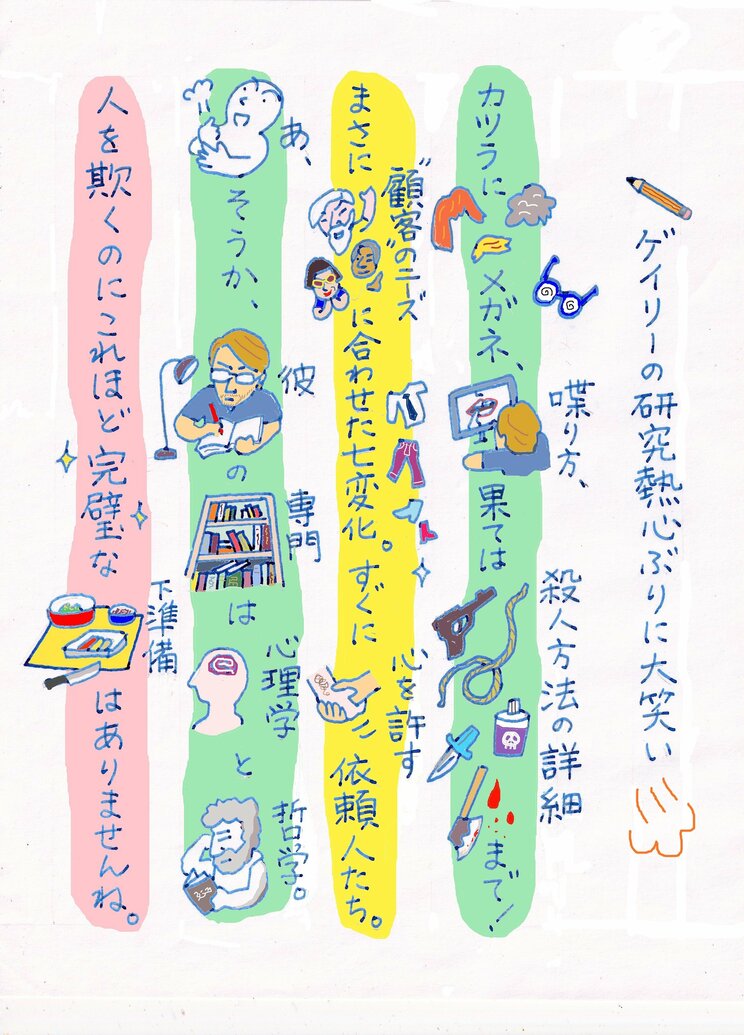 ゲイリーの研究熱心ぶりに大笑い
カツラにメガネ、喋り方、果ては殺人方法の詳細まで!
まさに"顧客"のニーズに合わせた七変化。ずくに心を許す依頼人たち。
あ、そうか、彼の専門は心理学と哲学。
人を欺くのにこれほど完璧な下準備はありませんね。